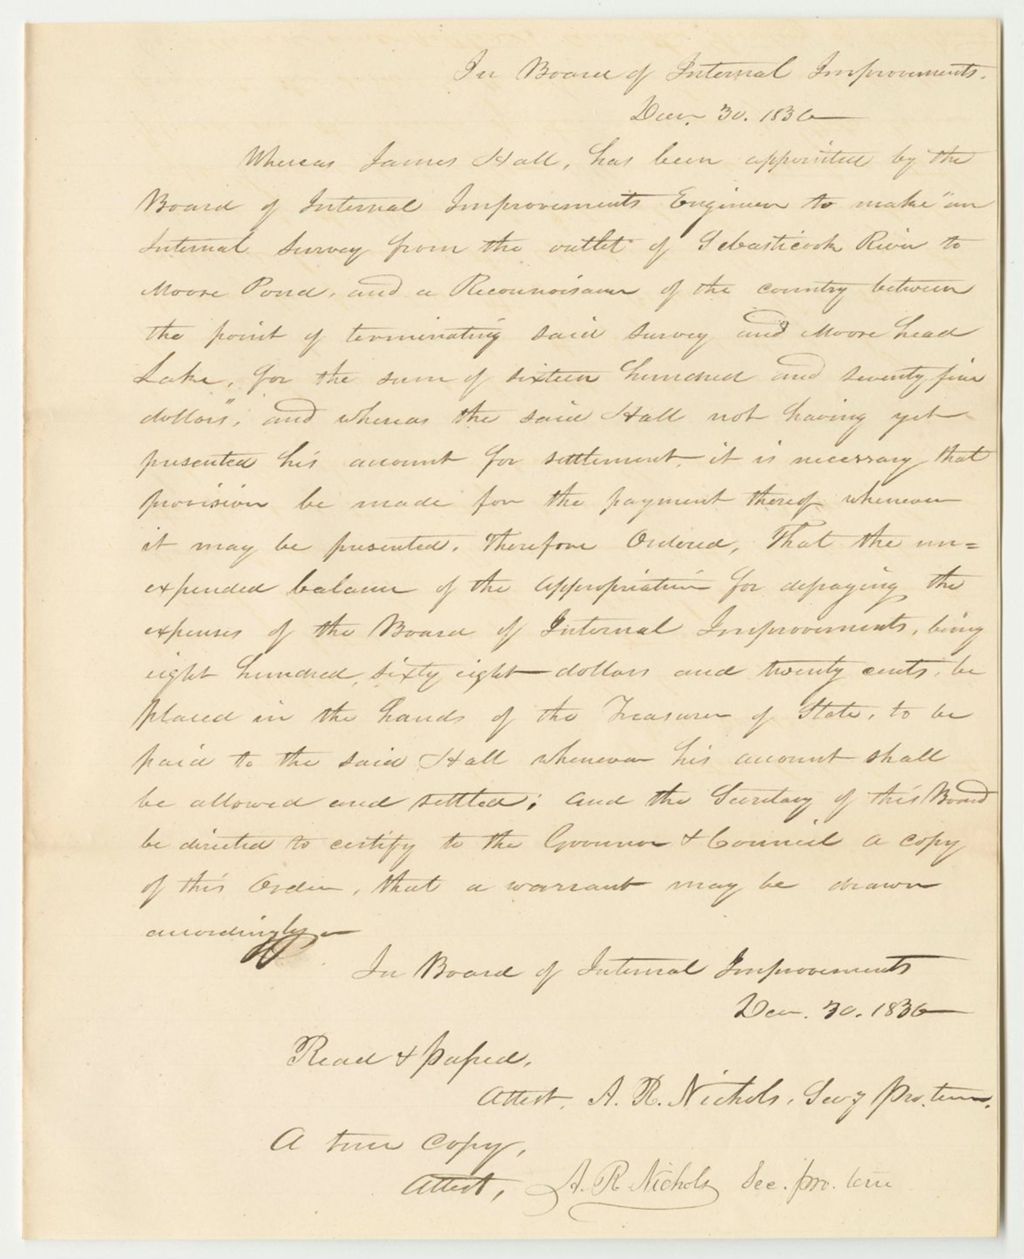 In Board of Internal Improvements.
Decr. 30. 1836
Whereas James Hall, has been appointed by the
Board of Internal Improvements Engineer to make "an
Internal Survey from the outlet of Sebasticook River to
Moore Pond, and a Reconnoisance of the country between
the point of terminating said survey and Moore head
Lake, for the sum of sixteen hundred and seventy five
dollars", and whereas the said Hall not having yet
presented his account for settlement, it is necessary that
provision be made for the payment thereof whenever
it may be presented. Therefore Ordered, That the un=
expended balance of the appropriation for defraying the
expenses of the Board of Internal Improvements, being
eight hundred, sixty eight dollars and twenty cents, be
placed in the hands of the Treasurer of State, to be
paid to the said Hall whenever his account shall
be allowed and settled; and the Secretary of this Board
be directed to certify to the Governor & Council a copy
of this Order, that a warrant may be drawn
accordingly
In Board of Internal Improvements
Decr. 30. 1836
Read & passed.
Attest, A. R. Nichols, Secy pro. tem.
A true copy,
Attest, A. R. Nichols Sec. pro. tem